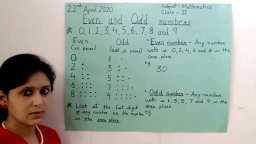 22nd April 2020
Subject - Mathematics
Class - II
Even and Odd numbers
* 0, 1, 2, 3, 4, 5, 6, 7, 8 and 9
Even Odd
* Even number - Any number
with 0, 2, 4, 6 and 8 in the
ones place.
eg
30
0 1
2 3
4 5
6 7
8 9
* Odd number - Any number
with 1, 3, 5, 7 and 9 in the
ones place
* Look at the last digit
of any number
ones place